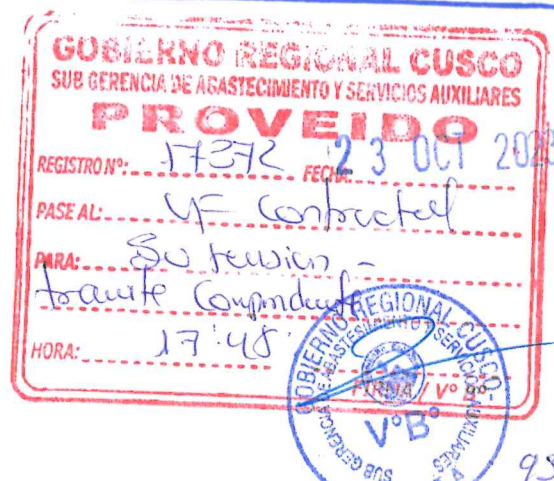 GOBIERNO REGIONAL CUSCO
SUB GERENCIA DE ABASTECIMIENTO Y SERVICIOS AUXILIARES
PROVEIDO
REGISTRO Nº: 17372 FECHA: 23 OCT 202
PASE AL: UF Contractual
PARA: Su
tramite
HORA: 17:48
FIRMA / Vº Bº
GOBIERNO REGIONAL CUSCO
SUB GERENCIA DE ABASTECIMIENTO Y SERVICIOS AUXILIARES
VºBº